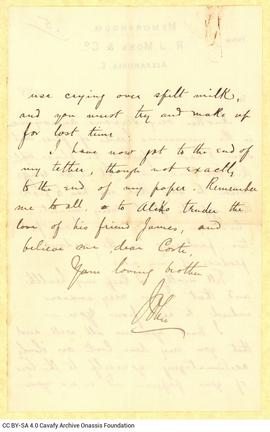 use crying over spilt milk,
and you must try and make up
for lost time
I have now got to the end of
my tether, though not exactly
to the end of my paper. Remember
me to all, & to Aleko tender the
love of his friend James, and
believe me, dear Costi,
Your loving brother
CC BY-SA 4.0 Cavafy Archive Onassis Foundation